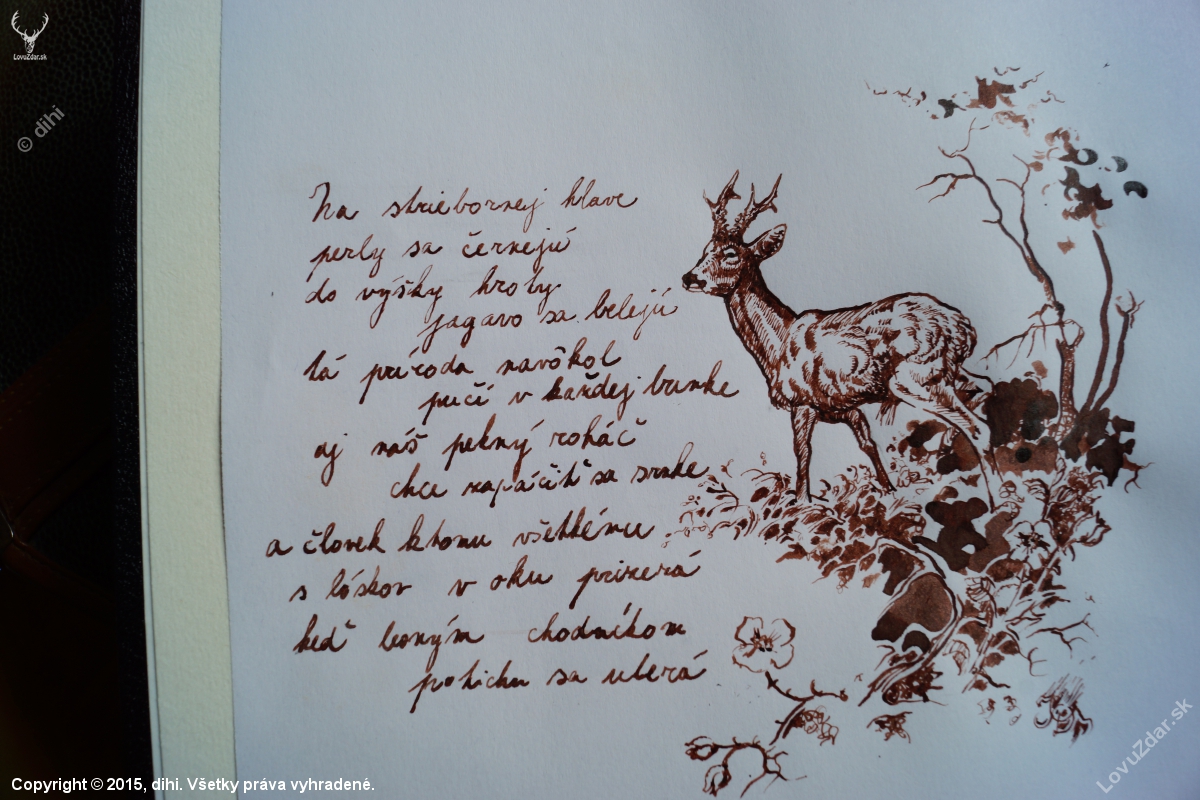 LovuZdar.sk
© dihi
Na striebornej hlave
perly sa černejú
do výšky hroty
jagavo sa belejú
tá príroda navôkol
pučí v každej bunke
aj náš pekný roháč
chce zapáčiť sa srnke
a človek ktomu všetkému
s láskov v oku prizerá
keď lesným chodníkom
potichu sa uberá
LovuZdar.sk
Copyright © 2015, dihi. Všetky práva vyhradené.